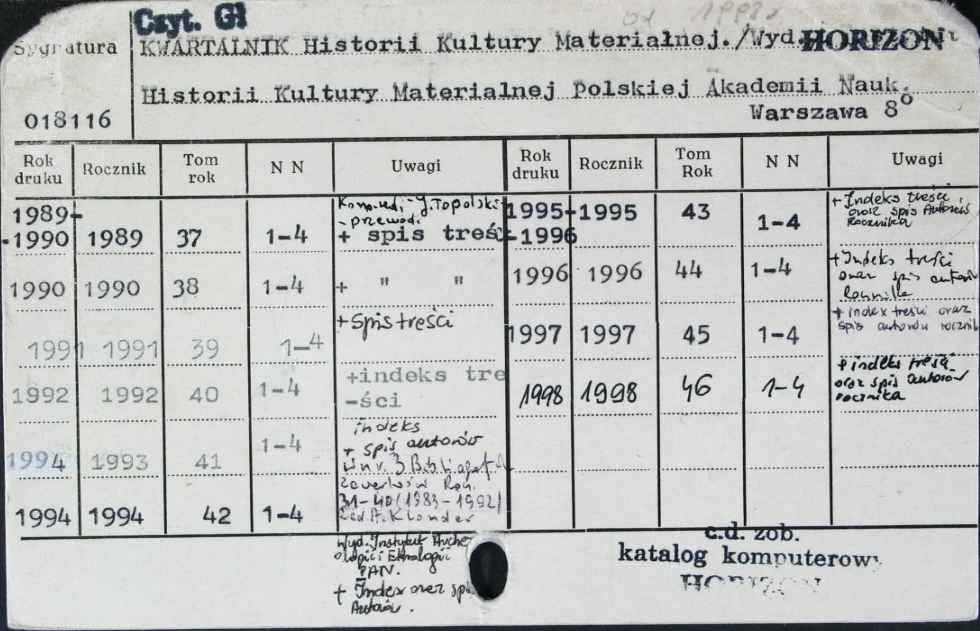 Czyt. Gł
od 1992r
Sygnatura
KWARTALNIK Historii Kultury Materialnej./Wyd. HORIZON
Historii Kultury Materialnej Polskiej Akademii Nauk.
018116
Warszawa 8°
Rok druku Rocznik Tom rok N N Uwagi Rok druku Rocznik Tom Rok N N Uwagi
1989-
-1990 1989 37 1-4 J. Topolski
- przewod.
+ spis treśc
1990 1990 38 1-4 + " "
1991 1991 39 1-4 + Spis treści
1992 1992 40 1-4 +indeks tre
-ści
1994 1993 41 1-4 indeks
+ spis autorów
w nr. 3
31-40 (1983-1992)
1994 1994 42 1-4
Wyd. Instytut Arche
ologii i Etnologii
PAN.
+ Index oraz spis
Autorów.
1995- 1995 43 1-4 + Indeks treści,
-1996 oraz spis Autorów
Rocznika
1996 1996 44 1-4 + Indeks treści
oraz spis autorów
Rocznika
1997 1997 45 1-4 + index treści oraz
spis autorów roczni
1998 1998 46 1-4 + indeks treści
oraz spis autorów
rocznika
c.d. zob.
katalog komputerowy
HORIZON